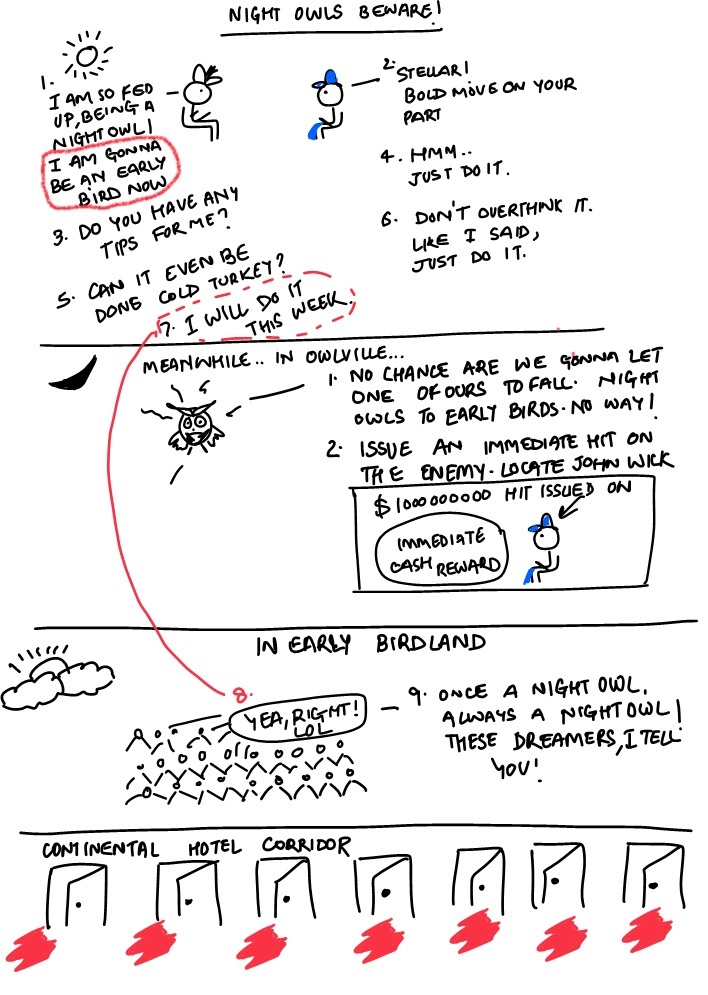 NIGHT OWLS BEWARE!
1.
I AM SO FED
UP, BEING A
NIGHT OWL!
I AM GONNA
BE AN EARLY
BIRD NOW
2. STELLAR!
BOLD MOVE ON YOUR
PART
3. DO YOU HAVE ANY
TIPS FOR ME?
4. HMM..
JUST DO IT.
5. CAN IT EVEN BE
DONE COLD TURKEY?
6. DON'T OVERTHINK IT.
LIKE I SAID,
JUST DO IT.
7. I WILL DO IT
THIS WEEK.
MEANWHILE.. IN OWLVILLE...
1. NO CHANCE ARE WE GONNA LET
ONE OF OURS TO FALL. NIGHT
OWLS TO EARLY BIRDS. NO WAY!
2. ISSUE AN IMMEDIATE HIT ON
THE ENEMY. LOCATE JOHN WICK
$1000000000 HIT ISSUED ON
IMMEDIATE
CASH REWARD
IN EARLY BIRDLAND
8.
YEA, RIGHT!
LOL
9. ONCE A NIGHT OWL,
ALWAYS A NIGHT OWL!
THESE DREAMERS, I TELL
YOU!
CONTINENTAL HOTEL CORRIDOR